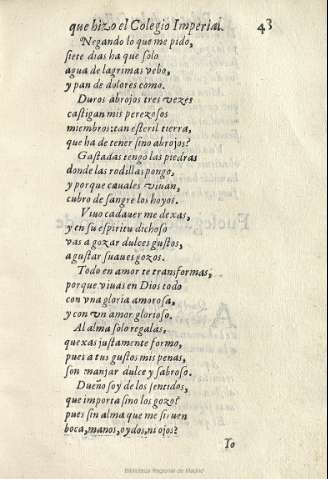 que hizo el Colegio Imperial. 43
Negando lo que me pido,
siete dias ha que solo
agua de lagrimas bebo,
y pan de dolores como.
Duros abrojos tres vezes
castigan mis perezosos
miembros tan esteril tierra,
que ha de tener sino abrojos?
Gastadas tengo las piedras
donde las rodillas pongo,
y porque cauales viuan,
cubro de sangre los hoyos.
Viuo cadauer me dexas,
y en su espiritu dichoso
vas a gozar dulces gustos,
a gustar suaues gozos.
Todo en amor te transformas,
porque viuas en Dios todo
con vna gloria amorosa,
y con vn amor glorioso.
Al alma solo regalas,
quexas justamente formo,
pues a tus gustos mis penas,
son manjar dulce y sabroso.
Dueño soy de los sentidos,
que importa sino los gozo?
pues sin alma que me siruen
boca, manos, oydos, ni ojos?
Yo
Biblioteca Regional de Madrid